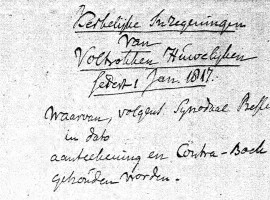 Kerkelijke Inzegeningen
van
Voltrokken Huwelijken
sedert 1 Jan. 1817.
waarvan, volgens Synodaal Besluit
in dato
aanteekening en Contra-Boek
gehouden worden.